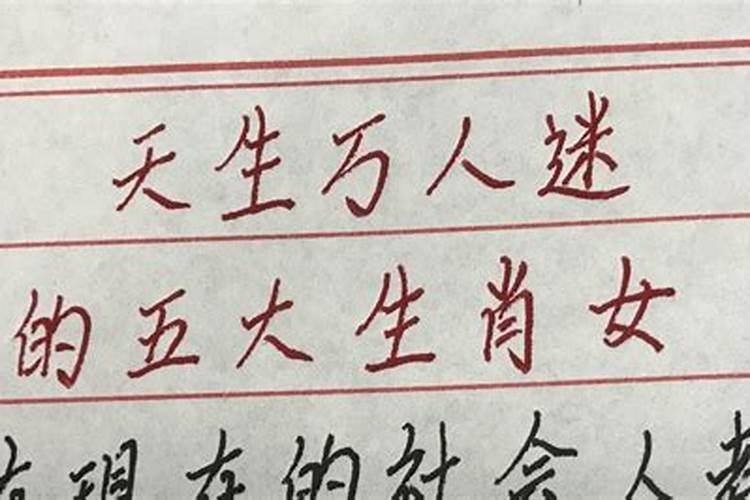 天生万人迷
的五大生肖女
在现在的社会人都